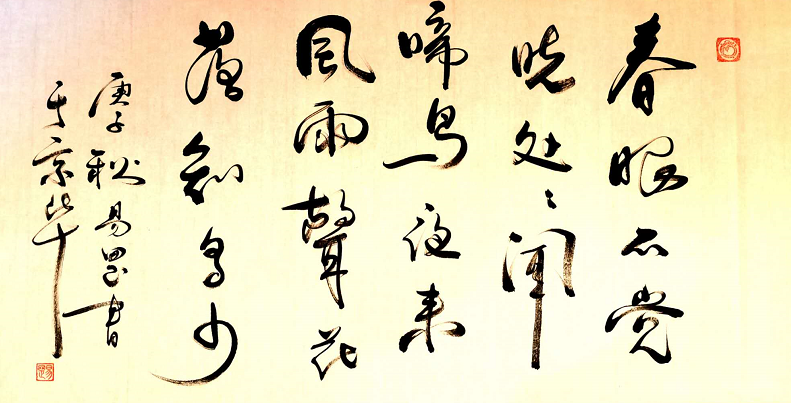 春眠不觉
晓处处闻
啼鸟夜来
风雨聲花
落知多少
庚子秋易墨书
于京华